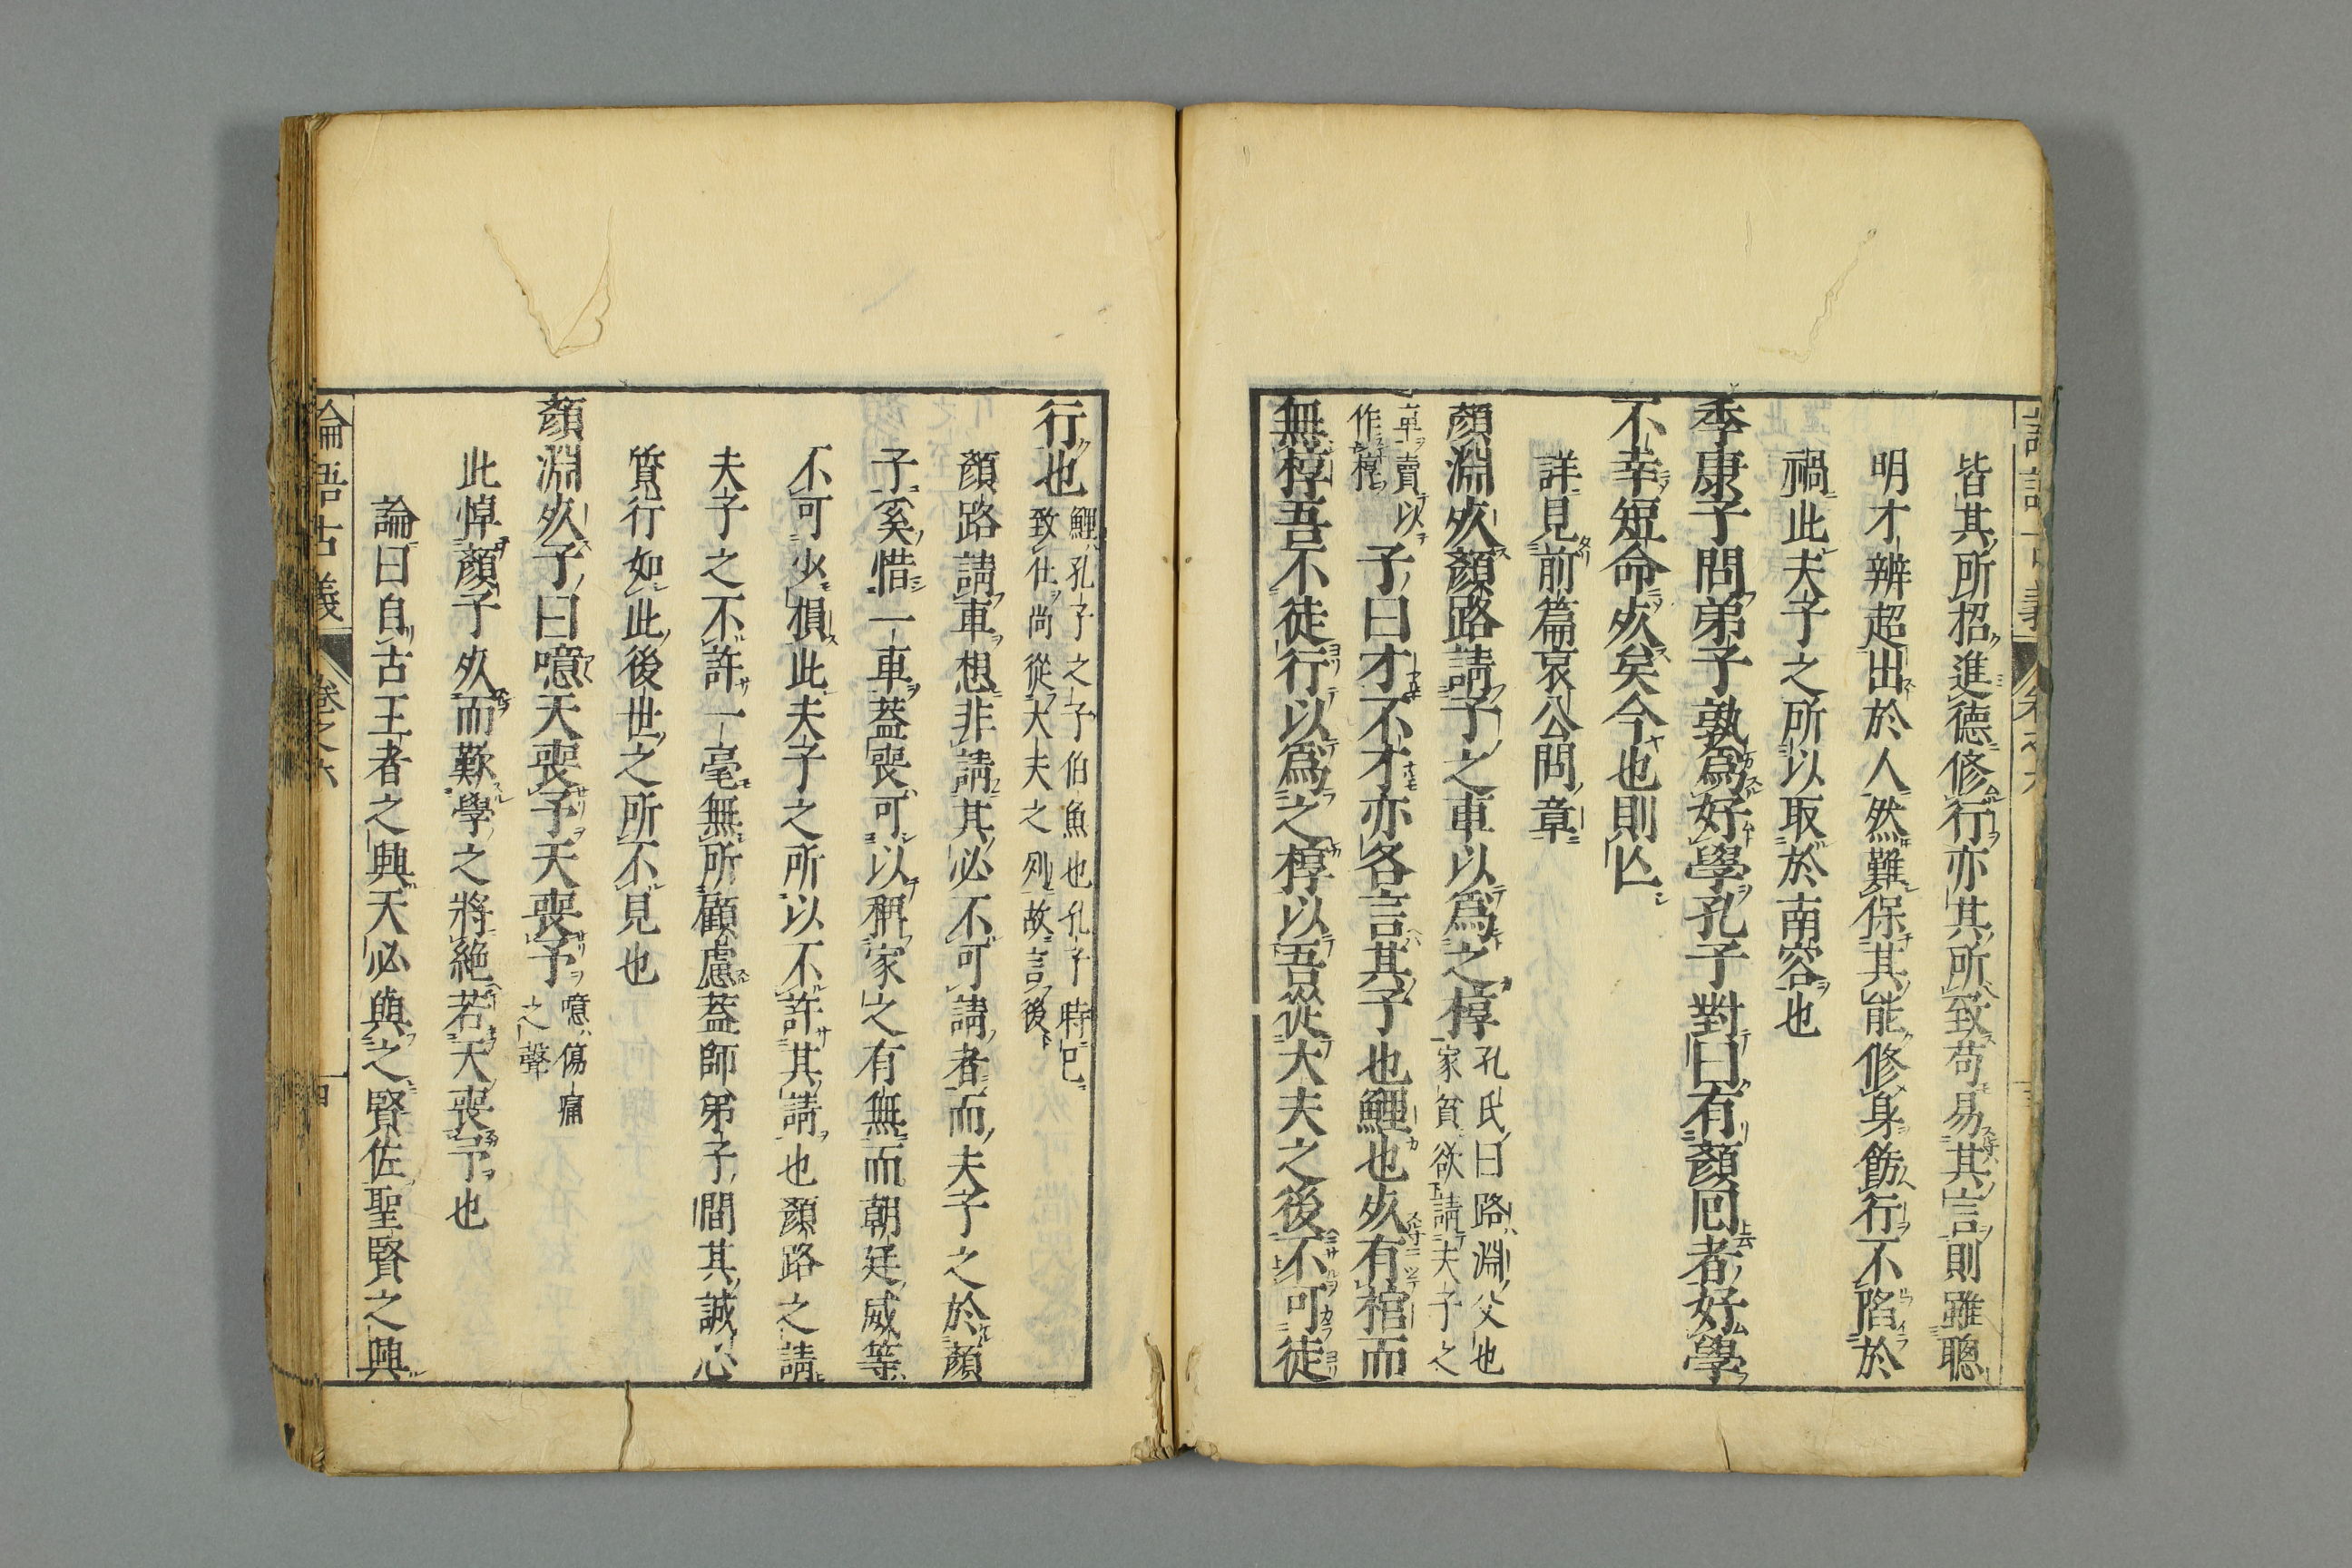 皆其所招進德修行亦其所致苟易其言則雖聰
明才辨超出於人然難保其能修身飭行不陷於
禍此夫子之所以取於南容也
季康子問弟子孰爲好學孔子對曰有顏回者好學
不幸短命死矣今也則亡
詳見前篇哀公問章
顏淵死顏路請子之車以爲之椁
孔氏曰路淵父也
家貧欲請夫子之
車賣以
作椁
子曰才不才亦各言其子也鯉也死有棺而
無椁吾不徒行以爲之椁以吾從大夫之後不可徒
行也
鯉孔子之子伯魚也孔子時已
致仕尚從大夫之列故言後
顏路請車想非請其必不可請者而夫子之於顏
子奚惜一車蓋喪可以稱家之有無而朝廷威等
不可少損此夫子之所以不許其請也顏路之請
夫子之不許一毫無所顧慮蓋師弟子間其誠心
質行如此後世之所不見也
顏淵死子曰噫天喪予天喪予
噫傷痛
之聲
此悼顏子死而歎學之將絕若天喪予也
論曰自古王者之興天必與之賢佐聖賢之興
論語古義
卷之六
四